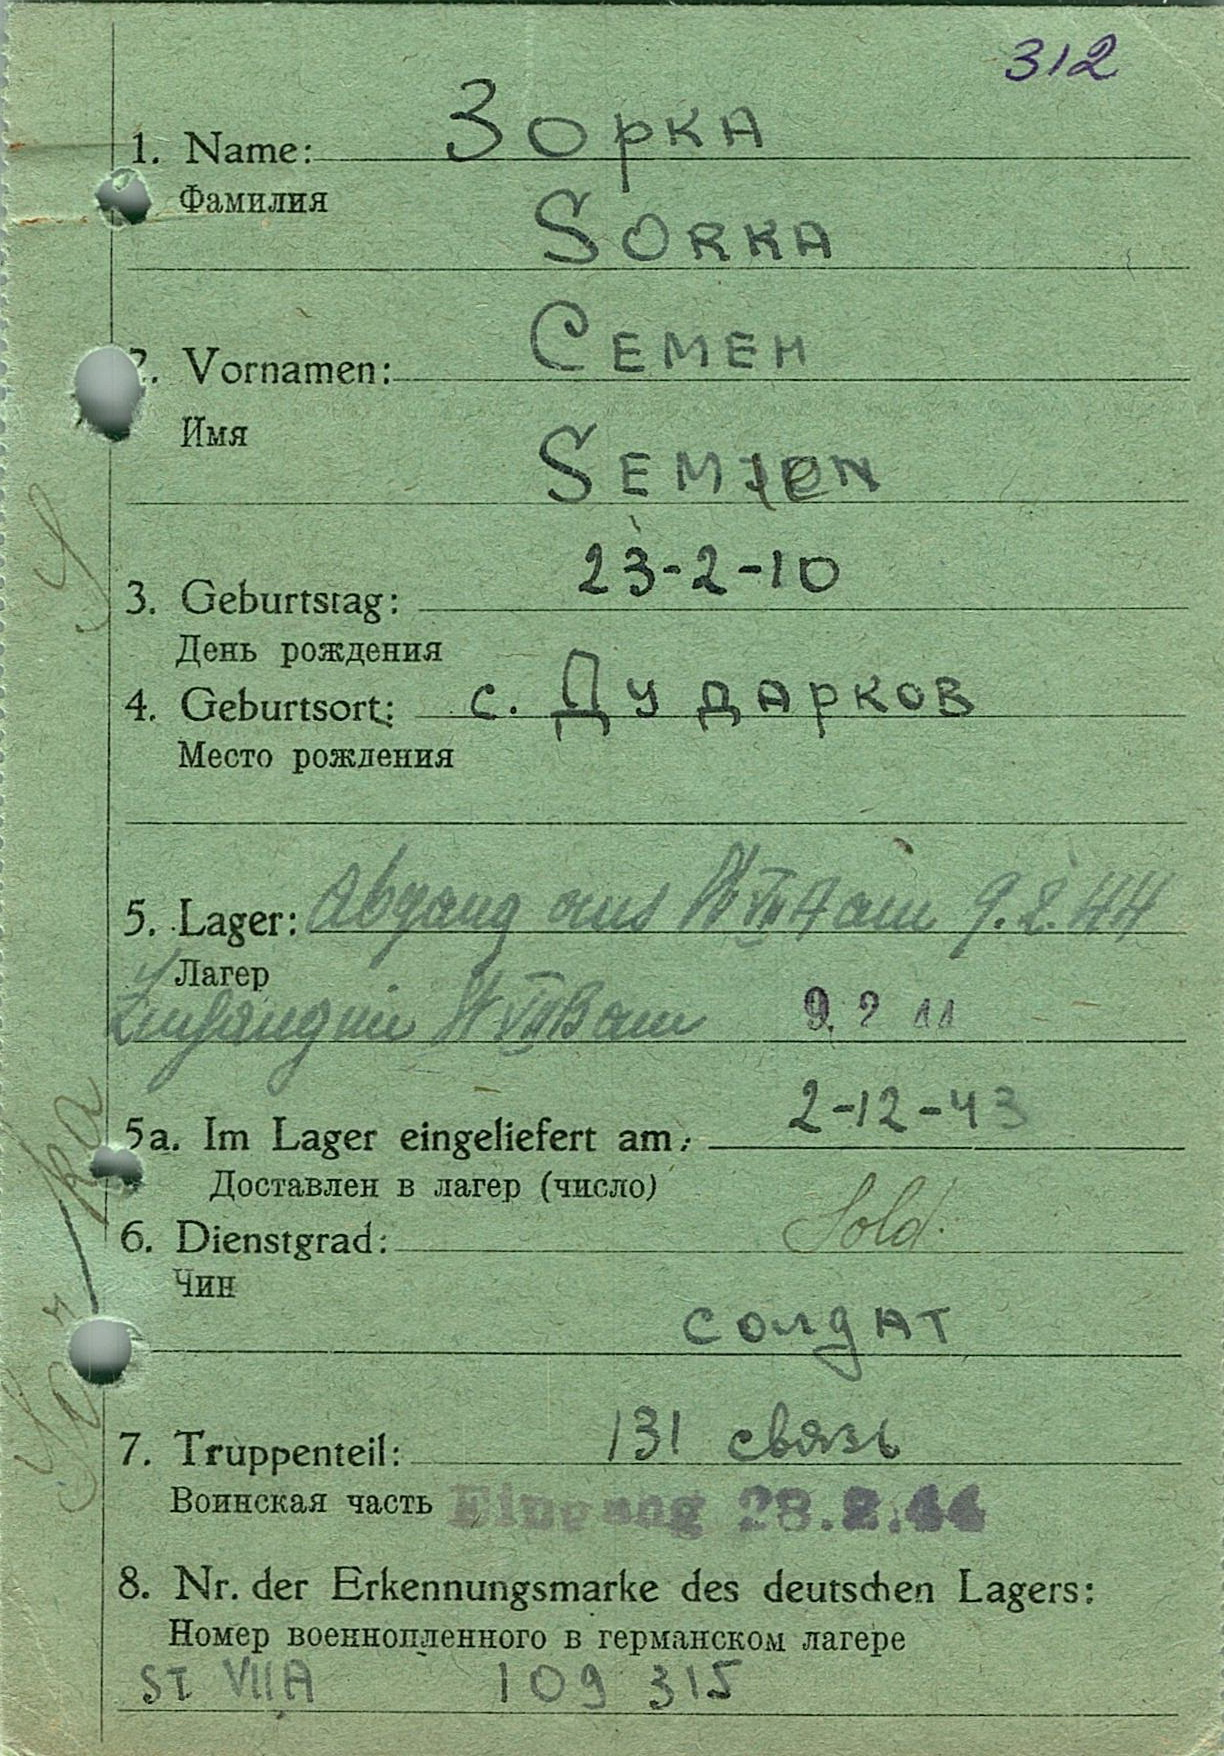 312
1. Name: Зорка
Фамилия
SORKA
2. Vornamen: Семен
Имя
SEMJEN
3. Geburtstag: 23-2-10
День рождения
4. Geburtsort: с. Дударков
Место рождения
5. Lager: Abgang aus St VII A am 9.2.44
Лагер
St VII B am 9. 2 44
5a. Im Lager eingeliefert am: 2-12-43
Доставлен в лагер (число)
6. Dienstgrad: Sold.
Чин
солдат
7. Truppenteil: 131 связь
Воинская часть Eingang 28.2.44
8. Nr. der Erkennungsmarke des deutschen Lagers:
Номер военнопленного в германском лагере
ST VIIA 109 315